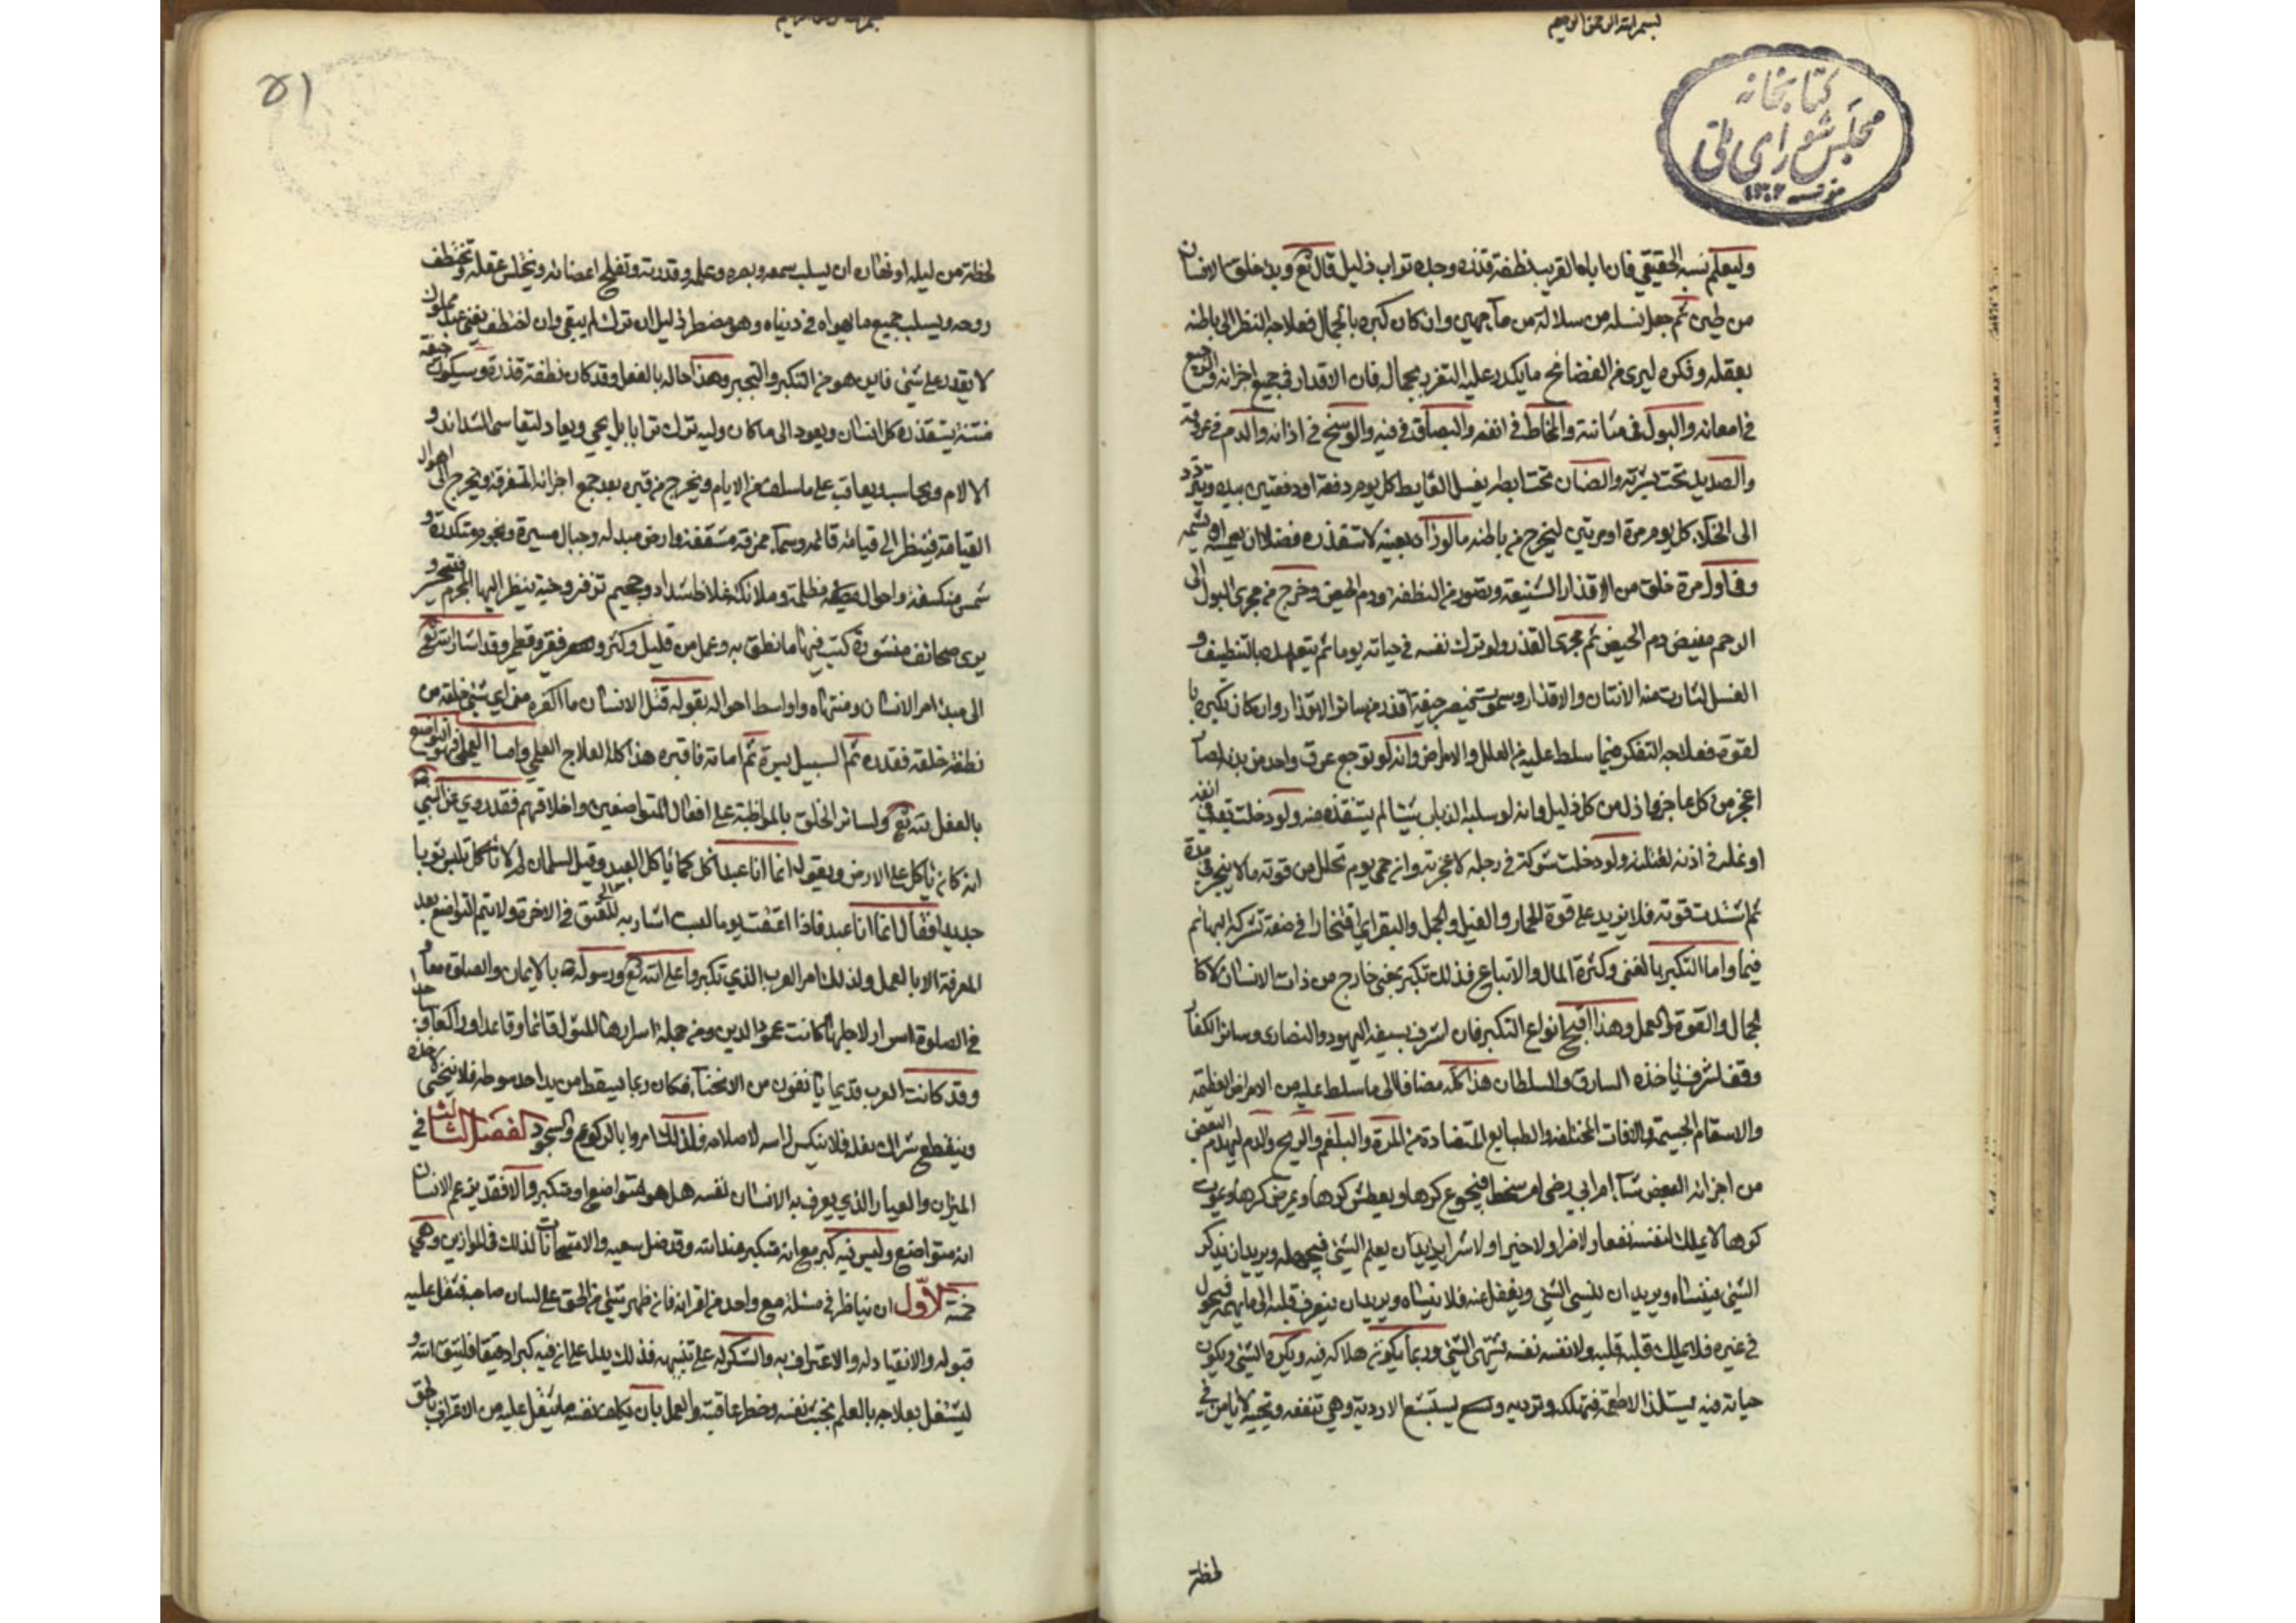 بسم الله الرحمن الرحيم
كتابخانه
مجلس شوراى ملى
وليعلم نسبه الحقيقي فان اباه القريب نطفة قذره وجده تراب ذليل قال تع وبدء خلق الانسان
من طين ثم جعل نسله من سلالة من مآء مهين وان كان كبره بالجمال فعلاجه النظر الى باطنه
بعقله وفكره ليرى من الفضائح ما يكدر عليه التعزز بجماله فان الاقذار في جميع اجزائه والرجيع
في امعائه والبول في مثانته والمخاط في انفه والبصاق في فيه والوسخ في اذانه والدم في عروقه
والصديد تحت بشرته والصنان تحت ابطه يغسل الغايط كل يوم دفعة او دفعتين بيده ويتردد
الى الخلآء كل يوم مرة او مرتين ليخرج من باطنه ما لو رآه بعينه لاستقذره فضلا ان يمسه او يشمه
وفي اول مرة خلق من الاقذار الشنيعة وتصور من النطفة ودم الحيض وخرج من مجرى البول الى
الرحم مفيض دم الحيض ثم مجرى القذر ولو ترك نفسه في حياته يوما ثم يتعهده بالتنظيف و
الغسل لثارت منه الانتان والاقذار وسيموت فيصير جيفة اقذر من سائر الاقذار وان كان تكبره با
لقوة فعلاجه التفكر فيما سلط عليه من العلل والامراض وانه لو توجع عرق واحد من بدنه لصار
اعجز من كل عاجز واذل من كل ذليل وانه لو سلبه الذباب شيئا لم يستنقذه منه ولو دخلت بقة في انفه
او نملة في اذنه لقتلته ولو دخلت شوكة في رجله لاعجزته وان حمى يوم تحلل من قوته ما لا ينجبر في مدة
ثم اشتدت قوته فلا يزيد على قوة الحمار والفيل والجمل والبقر اي افتخار في صفة تشركه البهائم
فيها واما التكبر بالغنى وكثرة المال والاتباع فذلك تكبر بمعنى خارج من ذات الانسان لا كا
لجمال والقوة والعمل وهذا اقبح انواع التكبر فان لشرف يسبقه اليهود والنصارى وسائر الكفار
وقف لشرف ياخذه السارق والسلطان هذا كله مضافا الى ما سلط عليه من الامراض العظيمة
والاسقام الجسيمة والافات المختلفة والطبايع المتضادة من المرة والبلغم والريح والدم ليهدم البعض
من اجزائه البعض شآء ام ابى رضى ام سخط فيجوع كرها ويعطش كرها ويمرض كرها ويموت
كرها لا يملك لنفسه نفعا ولا ضرا ولا خيرا ولا شرا يريد ان يعلم الشئ فيجهله ويريد ان يذكر
الشئ فينساه ويريد ان ينسى الشئ ويغفل عنه فلا ينساه ويريد ان ينصرف قلبه الى ما يهمه فيجول
في غيره فلا يملك قلبه قلبه ولا نفسه نفسه يشتهى الشئ وربما يكون هلاكه فيه ويكره الشئ ويكون
حياته فيه يستلذ الاطعمة فتهلكه وترديه ويستبشع الادوية وهي تنفعه وتحييه لا يامن في
لحظة
بسم الله الرحمن الرحيم
٥١
لحظة من ليله او نهاره ان يسلب سمعه وبصره وعلمه وقدرته وتفلج اعضائه ويختلس عقله وتختطف
روحه ويسلب جميع ما يهواه في دنياه وهو مضطر ذليل ان ترك لم يبقى وان اختطف يفنى عبد مملوك
لا يقدر على شئ فاين هو من التكبر والتجبر وهذا حاله بالفعل وقد كان نطفة قذرة وسيكون جيفة
منتنة يستقذره كل انسان ويعود الى ما كان وليته ترك ترابا بل يحيى ويعاد ليقاسى الشدائد و
الالام ويحاسب ويعاقب على ما سلف من الايام ويخرج من قبره بعد جمع اجزائه المتفرقة ويخرج الى اهوال
القيامة فينظر الى قيامة قائمة وسمآء ممزقة مشققة وارض مبدلة وجبال مسيرة ونجوم منكدرة و
شمس منكسفة واحوال مظلمة وملائكة غلاظ شداد وجحيم تزفر وجنة ينظر اليها المجرم فيتحسر و
يرى صحائف منشورة كتب فيها ما نطق به وعمل من قليل وكثير وقد اشار الله تع
الى مبدء امر الانسان ومنتهاه واواسط احواله بقوله قتل الانسان ما اكفره من اى شئ خلقه من
نطفة خلقه فقدره ثم السبيل يسره ثم اماته فاقبره هذا كله العلاج العلمي واما العملي فهو التواضع
بالفعل لله تع ولسائر الخلق بالمواظبة على افعال المتواضعين واخلاقهم فقد روي عن النبي
انه كان ياكل على الارض ويقول انما انا عبد اكل كما ياكل العبد وقيل لسلمان لم لا تلبس ثوبا
جديدا فقال انما انا عبد فاذا اعتقت يوما لبست اشار به الى العتق في الاخرة ولا يتم التواضع بعد
المعرفة الا بالعمل ولذلك امر العرب الذي تكبروا على الله تع ورسوله بالايمان والصلوة معا و
في الصلوة اسرار لاجلها كانت عمود الدين ومن جملة اسرارها المثول قائما وقاعدا وراكعا وساجدا
وقد كانت العرب قديما يانفون من الانحنآء فكان ربما يسقط من يد احد سوطه فلا ينحنى لاخذه
وينقطع شراك نعله فلا ينكس راسه لاصلاحه فلذلك امروا بالركوع والسجود الفصل الثالث في
الميزان والعيار الذي يعرف به الانسان نفسه هل هو متواضع او متكبر والا فقد يزعم الانسان
انه متواضع وليس فيه كبر مع انه متكبر عند الله وقد ضل سعيه والامتحانات لذلك في الموازين وهي
خمسة الاول ان يناظر في مسئلة مع واحد من اقرانه فان ظهر شئ من الحق على لسان صاحبه فثقل عليه
قبوله والانقياد له والاعتراف به والشكر له على تنبيهه فذلك يدل على ان فيه كبرا دقيقا فليتق الله و
ليشتغل بعلاجه بالعلم بخبث نفسه وخطر عاقبته والعمل بان يكلف نفسه ما يثقل عليه من الاعتراف بالحق